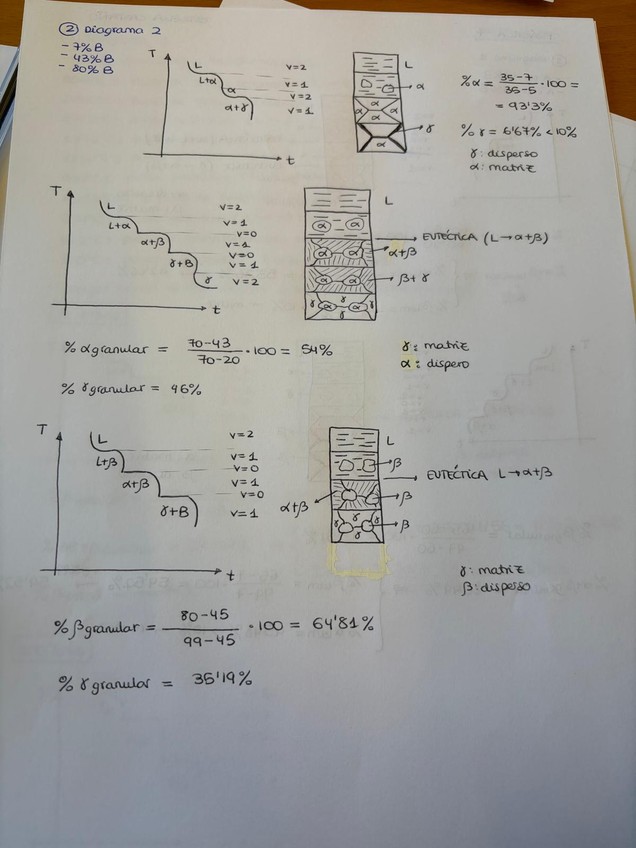 ② Diagrama 2
- 7% B
- 43% B
- 80% B
T
L
L+α
α
α+γ
t
v=2
v=1
v=2
v=1
L
α
α α α α
γ
α
%α = 35-7 / 35-5 · 100 =
= 93'3%
% γ = 6'67% < 10%
γ: disperso
α: matriz
T
L
L+α
α+β
γ+B
γ
t
v=2
v=1
v=0
v=1
v=0
v=1
v=2
L
α α
EUTÉCTICA (L→α+β)
α α
α+β
α α
β+γ
γ γ α γ α γ
% α granular = 70-43 / 70-20 · 100 = 54%
% γ granular = 46%
γ: matriz
α: dispero
T
L
L+β
α+β
γ+B
t
v=2
v=1
v=0
v=1
v=0
v=1
L
β
EUTÉCTICA L→α+β
α+β
β
γ γ γ γ
β
γ: matriz
β: disperso
% β granular = 80-45 / 99-45 · 100 = 64'81%
% γ granular = 35'19%